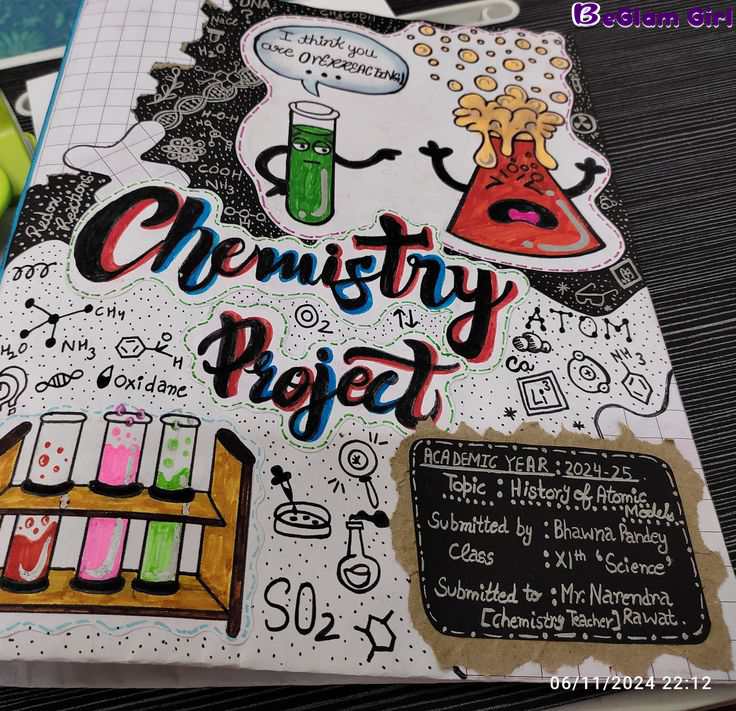 BeGlam Girl
DNA
Nice
H₂O
I think you
are OVERREACTING!
...
COOH
NH₃
Redox
Reactions
Chemistry
Project
CH₄
H₂O
NH₃
O
H
Oxidane
O₂
ATOM
Ca
NH₃
3
Li
SO₂
ACADEMIC YEAR : 2024-25
Topic : History of Atomic
Models
Submitted by : Bhawna Pandey
Class : XIth 'Science'
Submitted to : Mr. Narendra
[Chemistry Teacher] Rawat.
06/11/2024 22:12